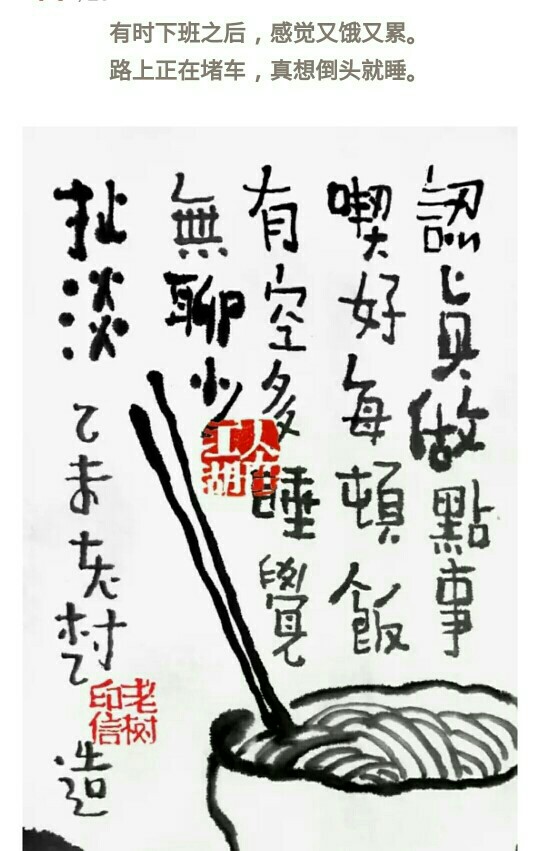 有时下班之后，感觉又饿又累。
路上正在堵车，真想倒头就睡。
認眞做點事
喫好每頓飯
有空多睡覺
無聊少
扯淡 乙未老村 造
人在
江湖
老树
印信